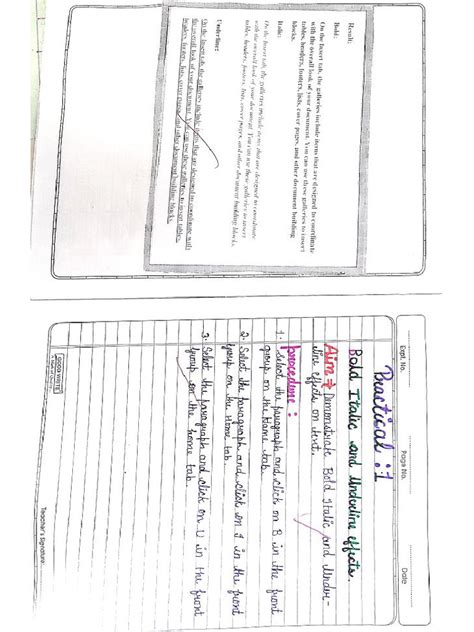 Result:
Bold:
On the Insert tab, the galleries include items that are designed to coordinate
with the overall look of your document. You can use these galleries to insert
tables, headers, footers, lists, cover pages, and other document building
blocks.
Italic:
On the Insert tab, the galleries include items that are designed to coordinate
with the overall look of your document. You can use these galleries to insert
tables, headers, footers, lists, cover pages, and other document building blocks.
Underline:
On the Insert tab, the galleries include items that are designed to coordinate with
the overall look of your document. You can use these galleries to insert tables,
headers, footers, lists, cover pages, and other document building blocks.
Expt. No.
Page No.
Date
Practical :1
Bold Italic and Underline effects.
Aim : Demonstrate Bold Italic and Under-
line effects on text.
procedure :
1. Select the paragraph and click on B in the front
group on the Home tab.
2. Select the paragraph and click on I in the front
group on the Home tab.
3. Select the paragraph and click on U in the front
group on the home tab.
GOOD WRITE
Teacher's Signature: